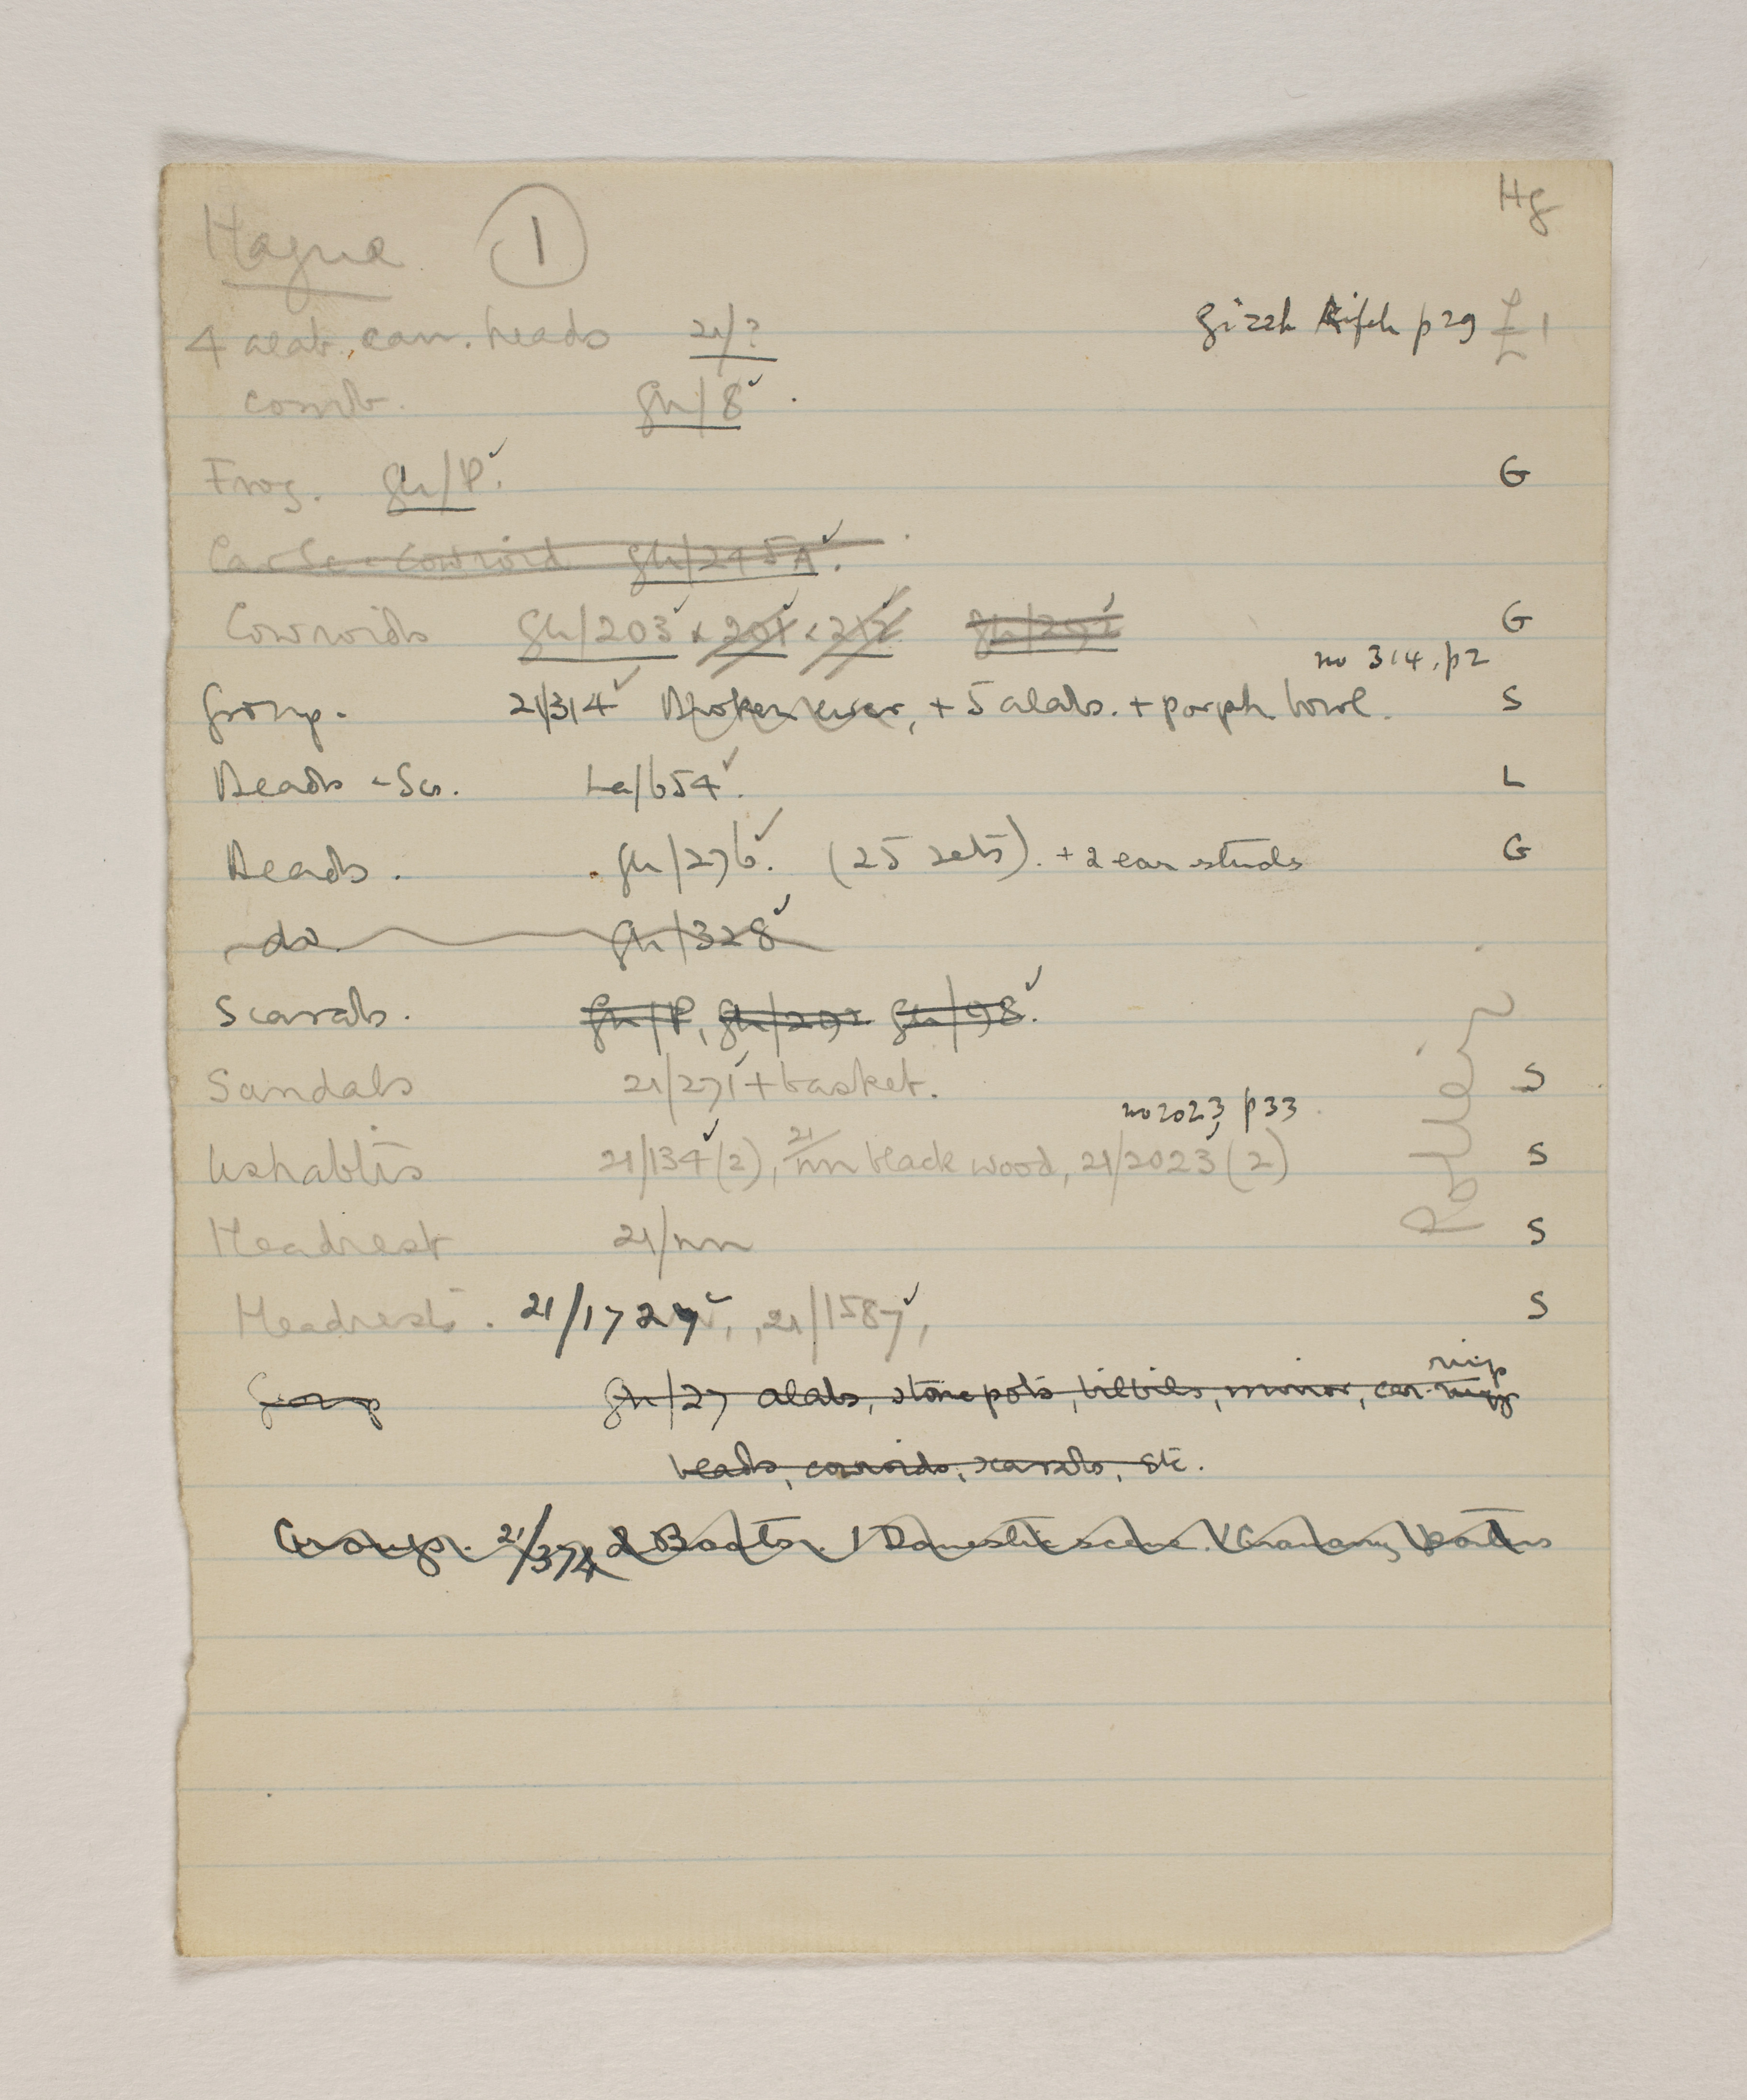 Hague 1 Hg
4 alab. can. heads 21/? Gizeh Rifeh p 29 £1
comb. Gh/8 ✓ .
Frog. Gh/P. ✓ G
Cowroid Gh/245A. ✓
Cowroids Gh/203 ✓ × 201 ✓ × 212 ✓ G
no 314. p2
Group. 21/314 ✓ Broken ever, + 5 alabs. + porph bowl. S
Beads - Sc. La/654 ✓. L
Beads. Gh/276 ✓. (25 sets). + 2 ear studs G
do. Gh/328 ✓
Scarabs. Gh/P, Gh/292 Gh/98 ✓.
Sandals 21/271 ✓ + basket. S
no 2023, p33
Ushabtis 21/134 ✓ (2), 21/nn black wood, 21/2023 ✓ (2) S
Headrest 21/nn S
Headrests. 21/1727 ✓, 21/1587 ✓, S
Group Gh/27 alabs, stone pots, bilbils, mirror, ear-rings
beads, cowroids, scarabs, etc.
Group. 21/374 2 Boats. 1 Domestic scene. 1 Granary